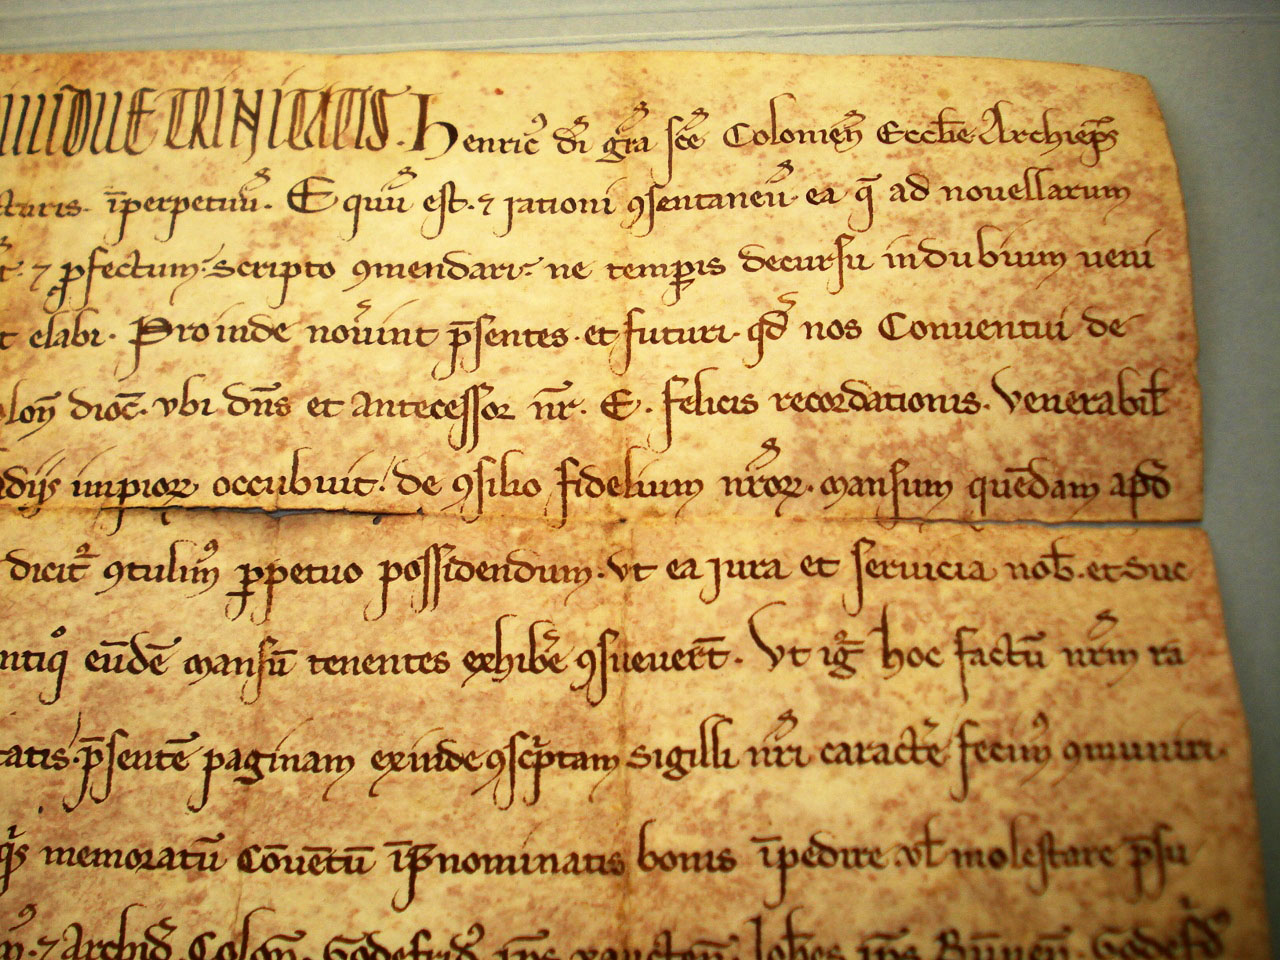 INDIUIDUE TRINITATIS. Henric᾿ dī gr̄a sc̄e Colonien̄ Eccl̄ie Archiep̄s
īperpetuū. Equū est. ⁊ rationi ꝯsentaneū. ea q̄ ad nouellarum
⁊ ꝓfectum. scripto ꝯmendari. ne temꝑis decursu indubium ueni
elabi. Proinde nouīnt p̄sentes. et futuri. qd̄ nos Conuentui de
dioc̄. vbi dn̄s et antecessor nr̄. E. felicis recordationis. venerabil̄
impioꝝ occubuit. de ꝯsilio fidelium nr̄oꝝ. mansum quēdam apd̄
dicit᾿ ꝯtulim᾿ ꝑpetuo possidendum. vt ea iura et seruicia nob̄. et suc
eūdē mansū tenentes exhibe᾿ ꝯsueuer̄t. Vt iḡ hoc factū nr̄m ra
p̄sentē paginam exinde ꝯsc᾿ptam sigilli nr̄i caracte᾿ fecim᾿ ꝯmuniri.
memoratū Cōuētū īp̄nominatis bonis īpedire vl̄ molestare p̄su
⁊ Archid᾿. Colon̄. Godefrid᾿ Godef᾿d᾿